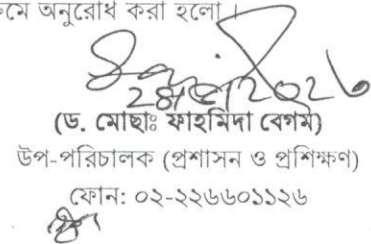 ক্রমে অনুরোধ করা হলো।
(ড. মোছাঃ ফাহমিদা বেগম)
উপ-পরিচালক (প্রশাসন ও প্রশিক্ষণ)
ফোন: ০২-২২৬৬০১১২৬